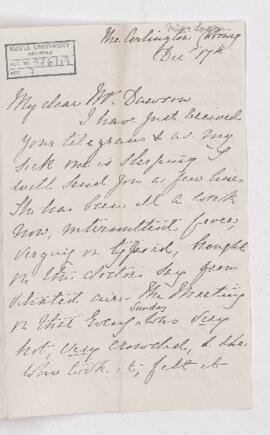 McGILL UNIVERSITY
ARCHIVES
ACC. NO. 976/17
REF. 7
The Arlington Cobourg
Dec 17th
My dear Mr. Dawson
I have just received
your telegram & as my
sick one is sleeping I
will send you a few lines
She has been ill a week
now, intermittent fever,
verging on typhoid, brought
on the doctors say from
vitiated air. The Meeting
Sunday
on that Evening was very
hot, very crowded, & she
who took it, felt it